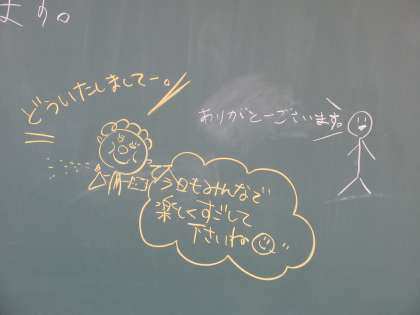 ます。
どういたしましてー。
ありがとーございます。
今日もみんなで
楽しくすごして
下さいね